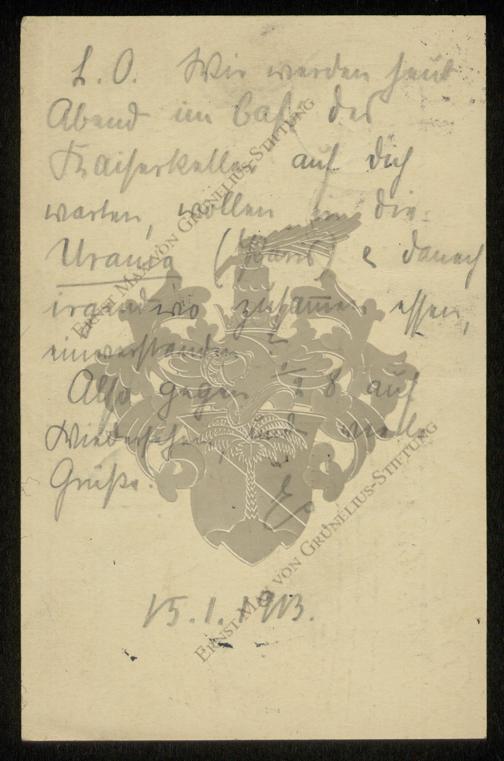 L. O. Wir werden heut
Abend im Café des
Kaiserkeller auf dich
warten, wollen in die
Urania (Paris) & danach
irgendwo zusammen essen,
einverstanden?
Also gegen ½ 8 auf
Wiedersehen, viele
Grüße.
15.1.1913.
ERNST MAX VON GRUNELIUS-STIFTUNG
ERNST MAX VON GRUNELIUS-STIFTUNG